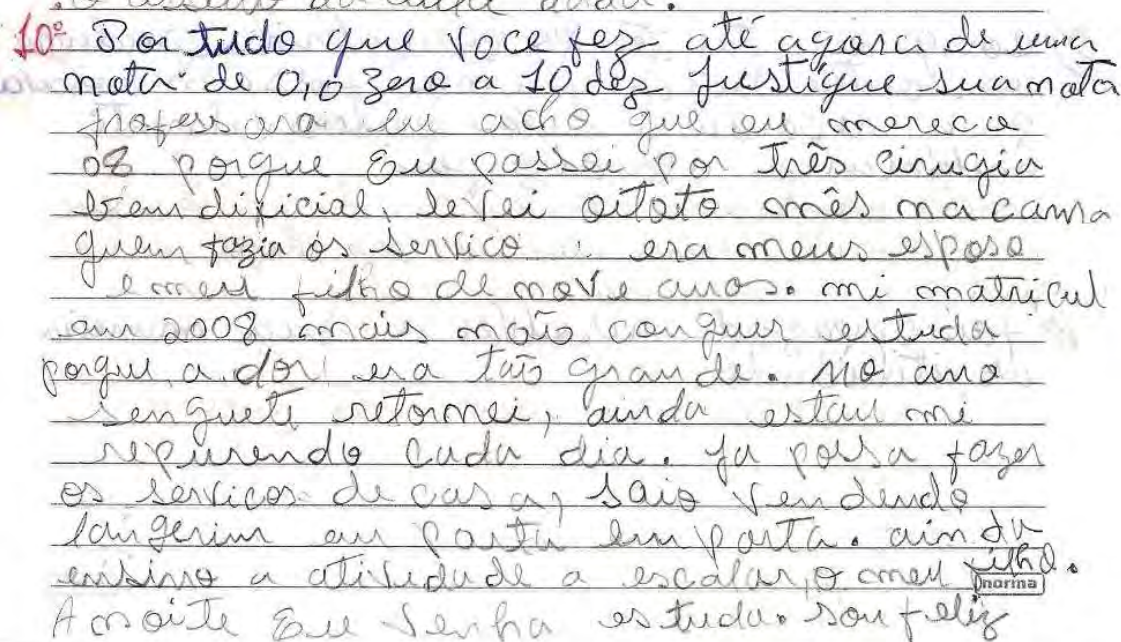 10º Por tudo que voce fez até agora de uma
nota de 0,0 zero a 10 dez justigue sua nota
professora eu acho que eu merece
08 porque Eu passei por três cirugia
bem dificial, levei oitoto mês na cama
quem fazia os servico : era meus esposo
e meu filho de nove anos. mi matricul
em 2008 mais não conguer estuda
porque a dor era tão grande. No ano
senguete retornei, ainda estau mi
repurendo cada dia. ja possa fazer
os servicos de casa, saio vendendo
langerim en porta em porta. ainda
ensinno a atividade a escolar, o meu filho.
norma
A noite Eu venha estuda. sou feliz